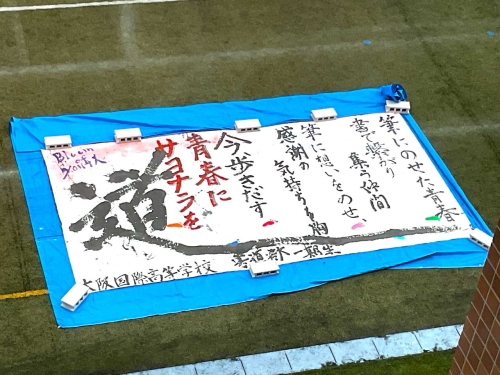 筆にのせた青春
書で繋がり
集う仲間
筆に想いをのせ、
感謝の
気持ちを胸に
今歩きだす
青春に
サヨナラを
道
大阪国際高等学校 書道部 一期生